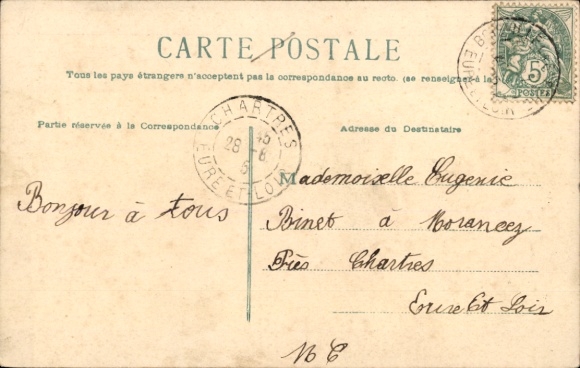 CARTE POSTALE
Tous les pays étrangers n'acceptent pas la correspondance au recto. (se renseigner à la
Partie réservée à la Correspondance
Adresse du Destinataire
CHARTRES
28 - 8
EURE ET LOIR
5c
POSTES
Bonjour à tous
Mademoiselle Eugenie
Binet à Morancez
Près Chartres
Eure Et Loir